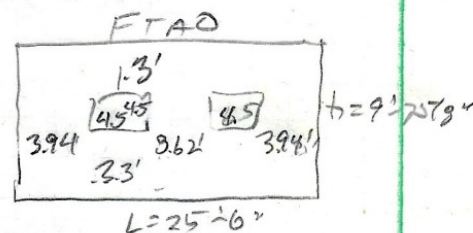 FTAO
1.3'
4.5 4.5 4.5
3.94' 8.62' 3.94'
3.3'
L = 25'-6"